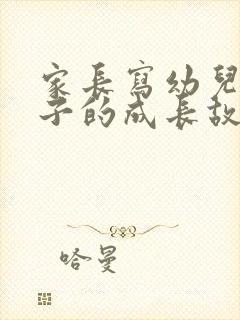 家長寫幼兒
子的成長故
哈曼